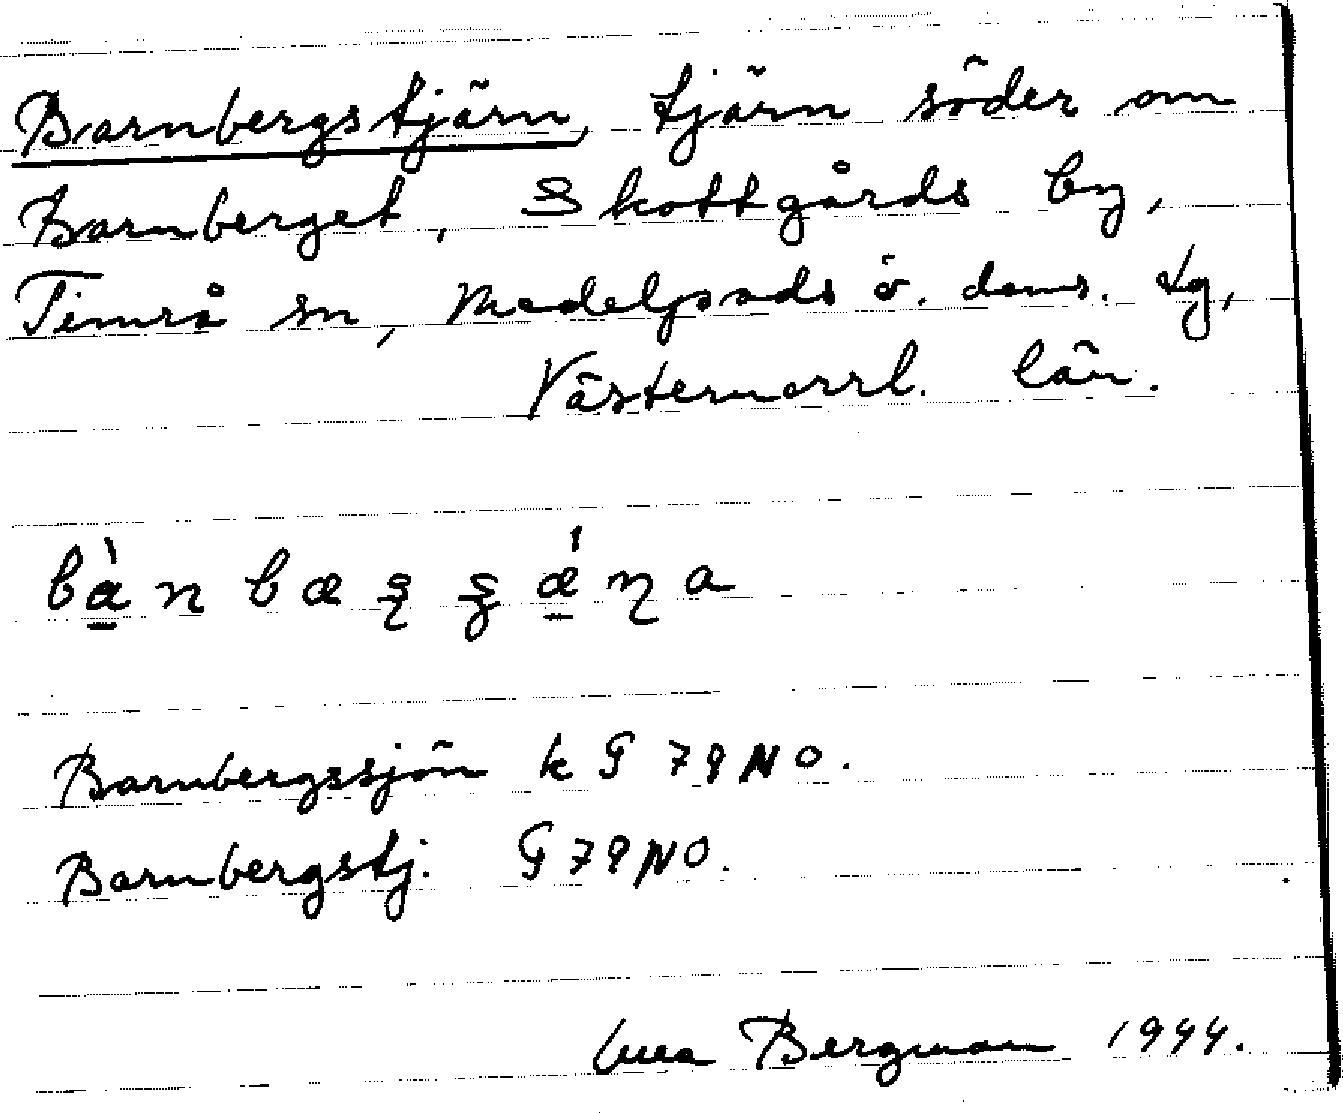 Barnbergstjärn, tjärn söder om
Barnberget, Skottgårds by,
Timrå sn, Medelpads ö. doms. tg,
Västernorrl. län.
Barnbergssjön k G 79 NO.
Barnbergstj. G 79 NO.
Bergman 1944.